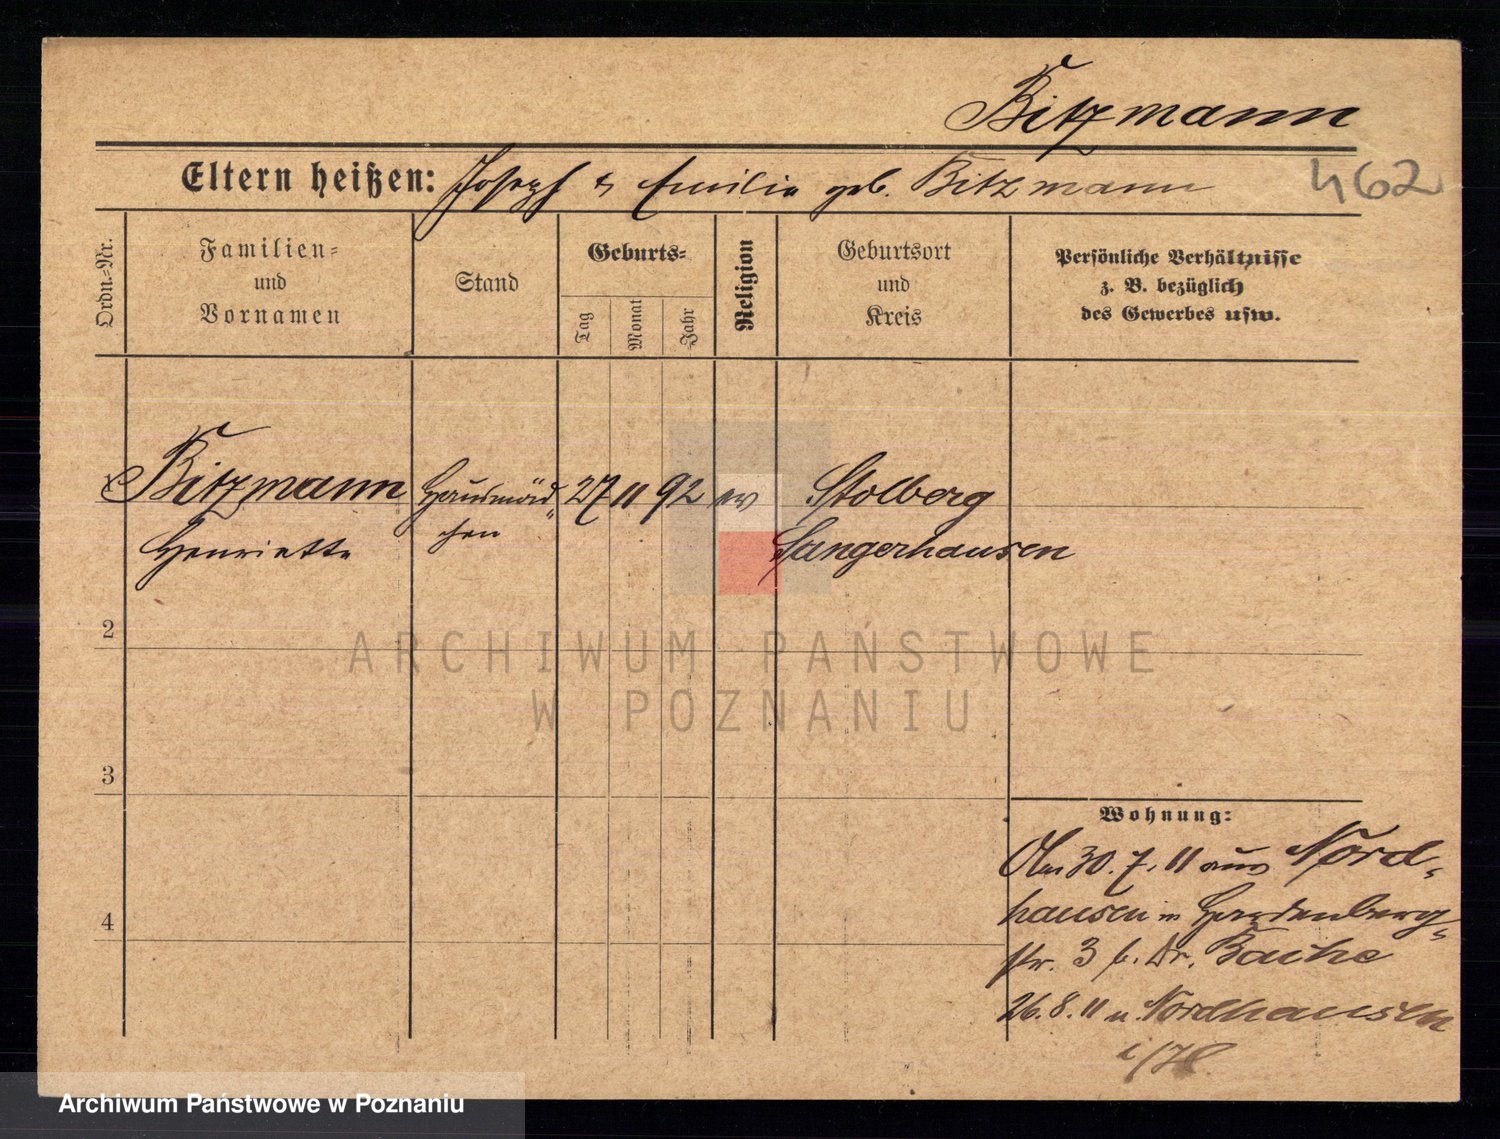 Bitzmann
Eltern heißen: Joseph & Emilie geb. Bitzmann
462
Ordn.-Nr.
Familien-
und
Vornamen
Stand
Geburts-
Tag
Monat
Jahr
Religion
Geburtsort
und
Kreis
Persönliche Verhältnisse
z. B. bezüglich
des Gewerbes usw.
1 Bitzmann Hausmäd- 27 11 92 ev Stolberg
Henriette chen Sangerhausen
2
ARCHIWUM PAŃSTWOWE
W POZNANIU
3
Wohnung:
30. 7. 11 aus Nord-
4
hausen n Hardenberg-
str. 3 b. Dr.
26. 8. 11 n. Nordhausen
Archiwum Państwowe w Poznaniu